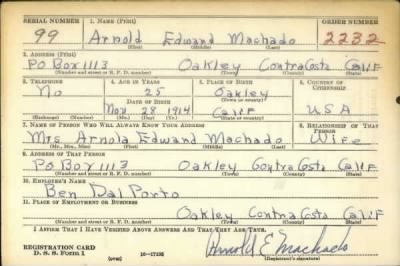 SERIAL NUMBER 1. NAME (Print) ORDER NUMBER
99 Arnold Edward Machado 2232
(First) (Middle) (Last)
2. ADDRESS (Print)
PO Box 1113 Oakley Contra Costa Calif
(Number and street or R. F. D. number) (Town) (County) (State)
3. TELEPHONE 4. AGE IN YEARS 5. PLACE OF BIRTH 6. COUNTRY OF CITIZENSHIP
No 25 Oakley
DATE OF BIRTH (Town or county)
Nov 28 1914 Calif USA
(Exchange) (Number) (Mo.) (Day) (Yr.) (State or country)
7. NAME OF PERSON WHO WILL ALWAYS KNOW YOUR ADDRESS 8. RELATIONSHIP OF THAT PERSON
Mrs Arnold Edward Machado Wife
(Mr., Mrs., Miss) (First) (Middle) (Last)
9. ADDRESS OF THAT PERSON
PO Box 1113 Oakley Contra Costa Calif
(Number and street or R. F. D. number) (Town) (County) (State)
10. EMPLOYER'S NAME
Ben Dal Porto
11. PLACE OF EMPLOYMENT OR BUSINESS
Oakley Contra Costa Calif
(Number and street or R. F. D. number) (Town) (County) (State)
I AFFIRM THAT I HAVE VERIFIED ABOVE ANSWERS AND THAT THEY ARE TRUE.
REGISTRATION CARD Arnold E Machado
D. S. S. Form 1 (over) 16-17105 (Registrant's signature)